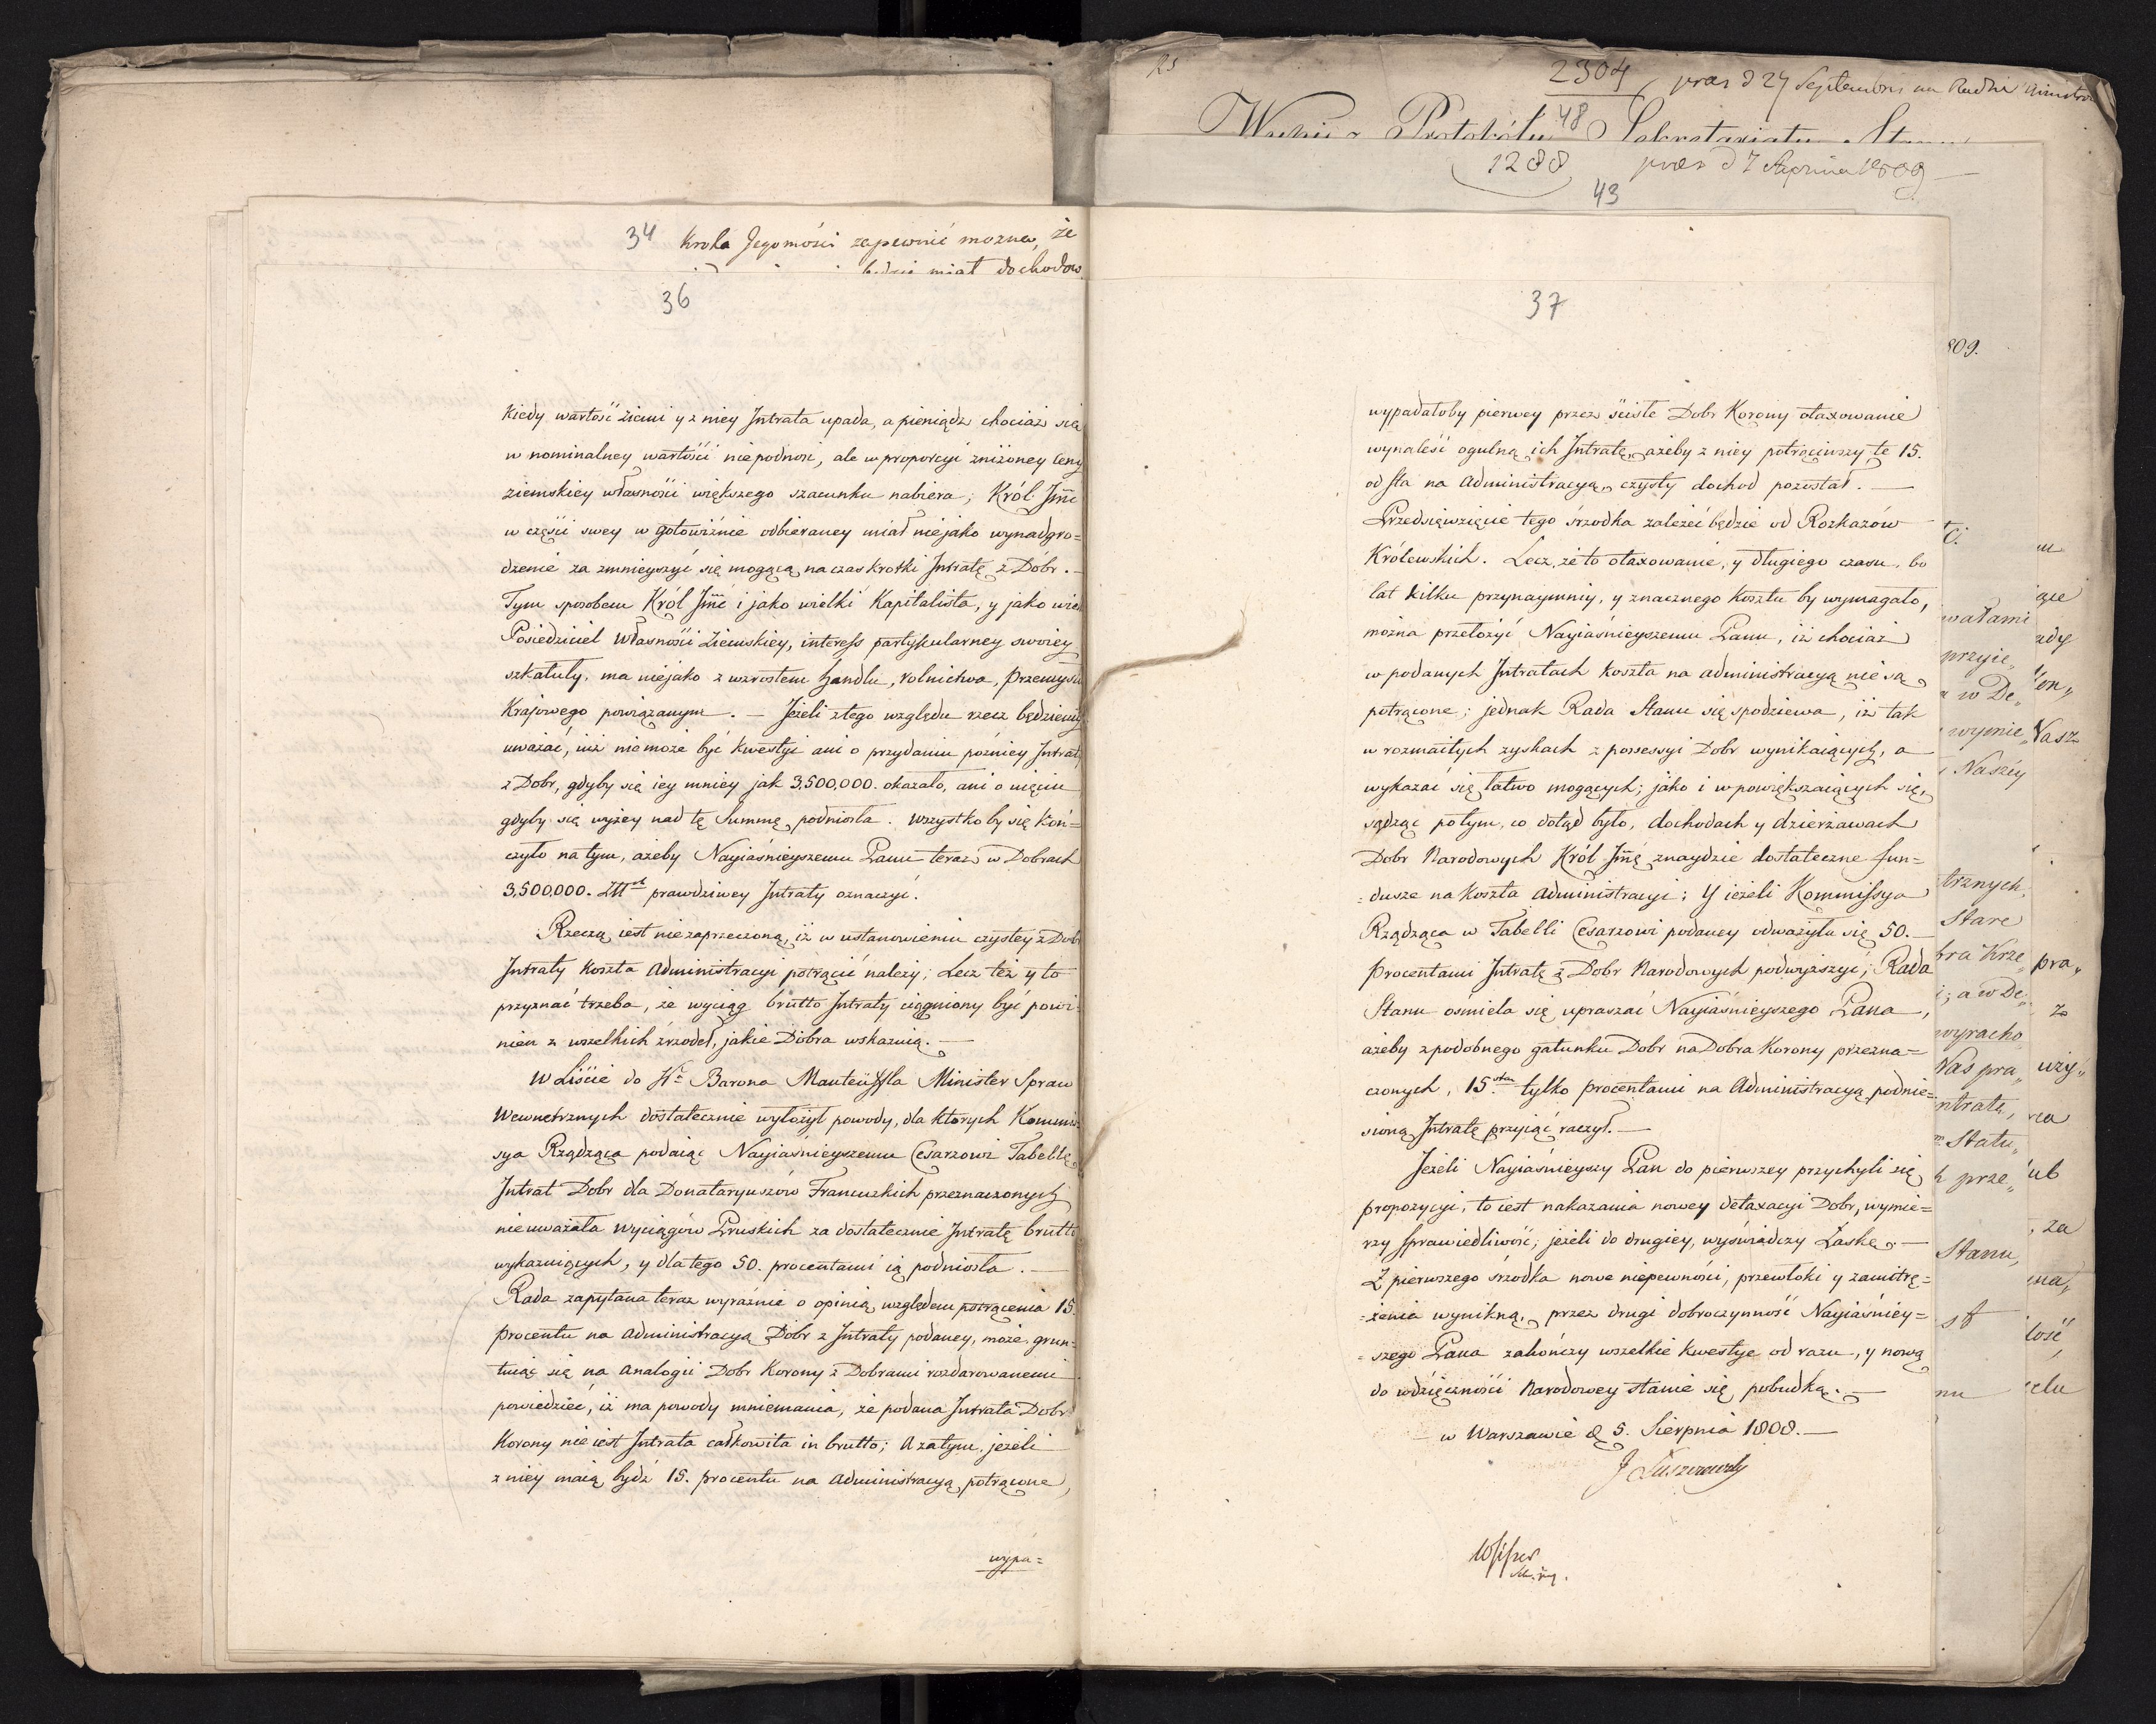 34 Krola Jegomości zapewnić mozna, że
będzie miał dochodow
36
Kiedy wartość ziemi y z niey Intrata upada, a pieniądz chociaż się
w nominalney wartości nie podnosi, ale w proporcyi zniżoney Ceny
ziemskiey własności większego szacunku nabiera; Król Jmć
w części swey w gotowiźnie odbieraney miał niejako wynadgro=
dzenie za zmnieyszyć się mogącą na czas krotki Intratę z Dóbr. —
Tym sposobem Król Jmć i jako wielki Kapitalista, y jako wiel
Posiedziciel Własności Ziemskiey, interess partykularney swoiey
szkatuły, ma niejako z wzrostem handlu, rolnictwa, przemysłu
Krajowego powiązanym. — Jeżeli z tego względu rzecz będziemy
uważać, już nie może być kwestyi ani o przydaniu pozniey Intraty
z Dobr, gdyby się iey mniey jak 3,500,000. okazało, ani o uięciu
gdyby się wyżey nad tę Summę podniosła. Wszystko by się koń=
czyło na tym, ażeby Nayiaśnieyszemu Panu teraz w Dobrach
3,500,000. Złłch prawdziwey Intraty oznaczyć.
Rzeczą iest niezaprzeczoną, iż w ustanowieniu czystey z Dobr
Intraty Koszta Administracyi potrącić należy; Lecz też y to
przyznać trzeba, że wyciąg brutto Intraty ciągniony być powi=
nien z wszelkich źrzodeł, jakie Dobra wskazuią. —
W Liście do Wo Barona Manteüffla Minister Spraw
Wewnetrznych dostatecznie wyłożył powody, dla ktorych Kommis
sya Rządząca podaiąc Nayiaśnieyszemu Cesarzowi Tabellę
Intrat Dobr dla Donataryuszów Francuzkich przeznaczonych
nie uważała Wyciągów Pruskich za dostatecznie Intratę brutto
wykazuiących, y dla tego 50. procentami ią podniosła. —
Rada zapytana teraz wyraźnie o opinią względem potrącenia 15.
procentu na Administracyą Dobr z Intraty podaney, może, grun=
tuiąc się na analogii Dobr Korony z Dobrami rozdarowanemi
powiedzieć, iż ma powody mniemania, że podana Intrata Dobr
Korony nie iest Intrata całkowita in brutto; A zatym, jeżeli
z niey maią bydź 15. procentu na Administracyą potrącone,
wypa=
25
2304 praes d 27 Septembris na Radzie
48
Protokółu Sekretaryatu Stanu
1288 praes d 7 Aprilis 1809 —
43
37
wypadałoby pierwey przez ściste Dobr Korony otaxowanie
wynaleść ogulną ich Intratę, ażeby z niey potrąciwszy te 15.
od sta na Administracyą, czysty dochod pozostał. —
Przedsięwzięcie tego śrzodka zależeć będzie od Rozkazów
Królewskich. Lecz, że to otaxowanie, y długiego czasu, bo
lat kilku przynaymniy, y znacznego Kosztu by wymagało,
można przełożyć Nayiaśnieyszemu Panu, iż chociaż
w podanych Intratach koszta na administracyą nie są
potrącone; jednak Rada Stanu się spodziewa, iż tak
w rozmaitych zyskach z possessyi Dobr wynikaiących, a
wykazać się łatwo mogących; jako i w powiększaiących się,
sądząc potym, co dotąd było, dochodach y dzierżawach
Dobr Narodowych Król Jmć znaydzie dostateczne fun=
=dusze na Koszta Administracyi; Y ieżeli Kommissya
Rządząca w Tabelli Cesarzowi podaney odważyła się 50. —
procentami Intratę z Dobr Narodowych podwyższyć; Rada
Stanu ośmiela się upraszać Nayiaśnieyszego Pana,
ażeby z podobnego gatunku Dobr na Dobra Korony przezna=
czonych, 15sta tylko procentami na Administracyą podnie=
sioną Intratę przyiąć raczył. —
Jeżeli Nayiaśnieyszy Pan do pierwszey przychyli się
propozycyi, to iest nakazania nowey detaxacyi Dobr, wymie=
rzy sprawiedliwość; jeżeli do drugiey, wyświadczy Łaskę. —
Z pierwszego śrzodka nowe niepewności, przewłoki y zamitrę=
=żenia wynikną, przez drugi dobroczynność Nayiaśniey=
=szego Pana zakończy wszelkie kwestye od razu, y nową
do wdzięczności Narodowey stanie się pobudką. —
w Warszawie d 5. Sierpnia 1808. —
J Łuszczewsky
809.
wałami
przyię„
w De„
wymie„
Naszey
trznych
Stare
bra Krze„
i; a w De„
wyracho„
Nas pra„
ntratę,
Statu„
prze„
Stanu,
Nasz
pra„
z
uży„
ub
, za